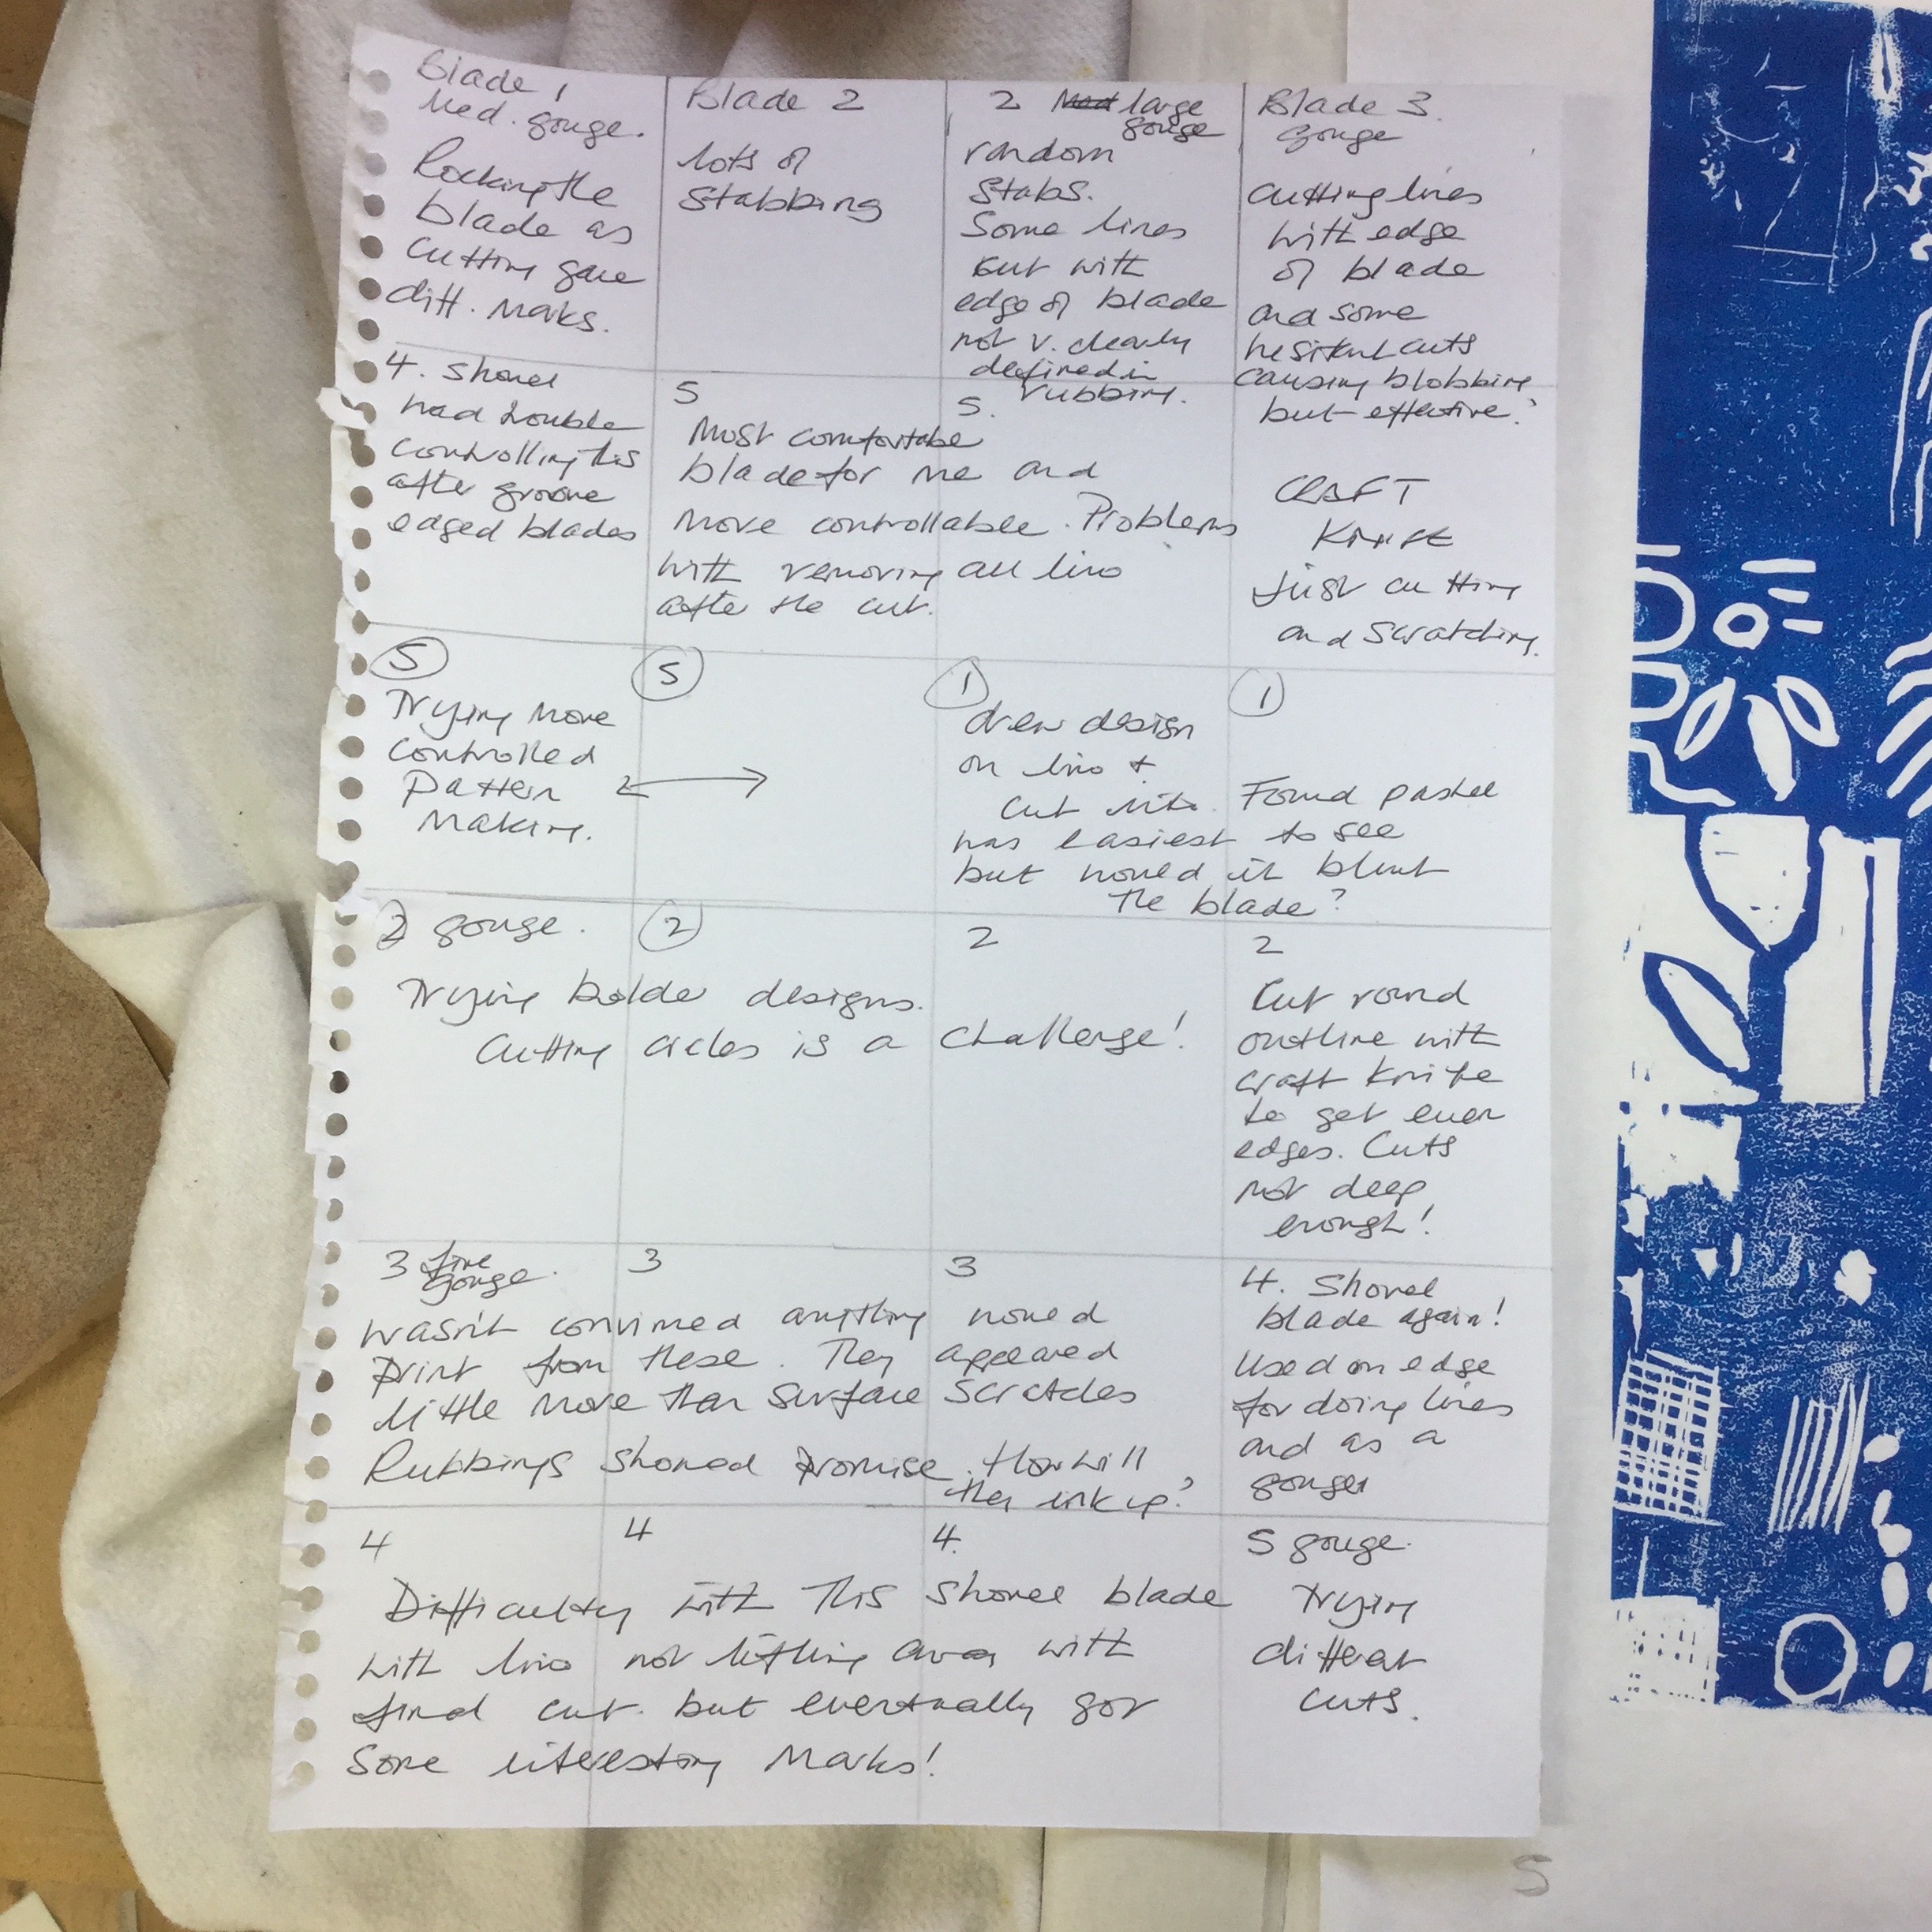 Blade 1
Med. gouge.
Rocking the
blade as
cutting gave
diff. marks.
Blade 2
lots of
Stabbing
2 Med large
gouge
random
stabs.
Some lines
cut with
edge of blade
not v. clearly
defined in
rubbing.
Blade 3.
gouge
cutting lines
with edge
of blade
and some
hesitant cuts
causing blobbing
but effective?
4. Shovel
had trouble
controlling this
after groove
edged blades
5
5.
Most comfortable
blade for me and
more controllable. Problems
with removing all lino
after the cut.
CRAFT
KNIFE
Just cutting
and scratching.
5
Trying more
controlled
pattern
making.
5
1
drew design
on lino +
cut into.
1
Found pastel
was easiest to see
but would it blunt
the blade?
2 gouge.
2
2
Trying bolder designs.
Cutting circles is a challenge!
2
Cut round
outline with
craft knife
to get even
edges. Cuts
not deep
enough!
3 fine
gouge.
3
3
wasn't convinced anything would
print from these. They appeared
little more than surface scratches
Rubbings showed promise. How will
they ink up?
4. Shovel
blade again!
Used on edge
for doing lines
and as a
gouger
4
4
4.
Difficulty with this shovel blade
with lino not lifting away with
final cut. but eventually got
some interesting marks!
5 gouge.
Trying
different
cuts.
5